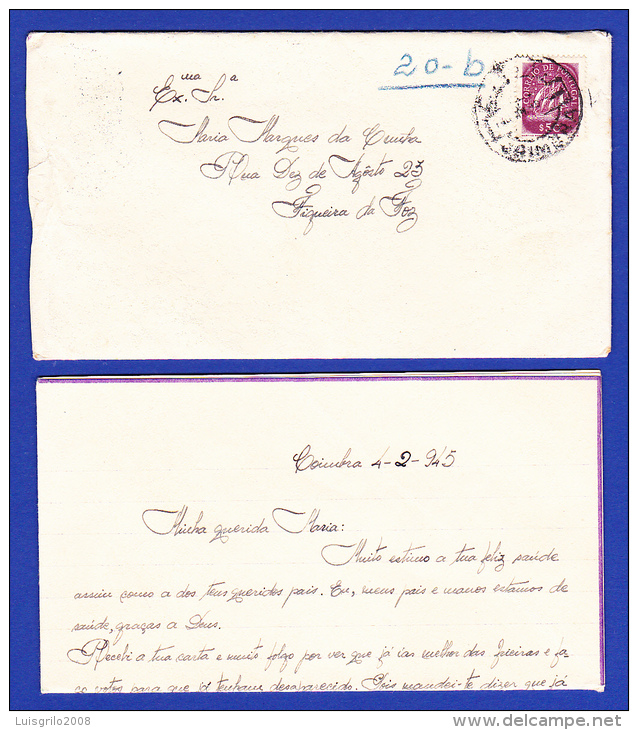 20-b
CORREIO DE PORTUGAL
Ex.ma Sr.a
Maria Marques da Cunha
Rua Dez de Agôsto 23
Figueira da Foz
Coimbra 4-2-945
Minha querida Maria:
Muito estimo a tua feliz saúde
assim como a dos teus queridos pais. Eu, meus pais e manos estamos de
saúde, graças a Deus.
Recebi a tua carta e muito folgo por ver que já ias melhor das frieiras e fa-
ço votos para que já tenham desaparecido. Pois mandei-te dizer que já
Luisgrilo2008
delcampe.net